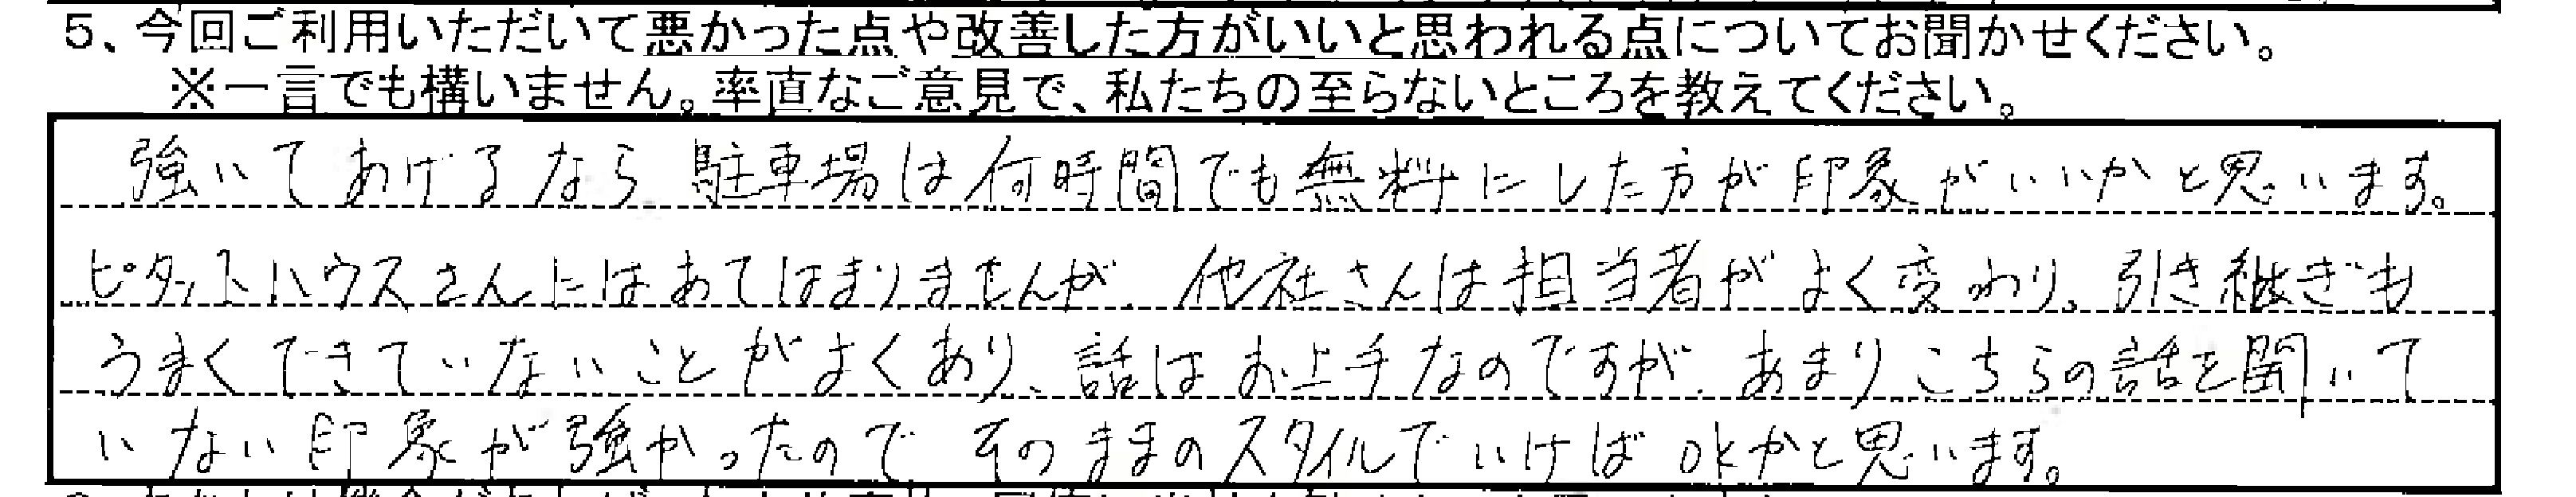 5、今回ご利用いただいて悪かった点や改善した方がいいと思われる点についてお聞かせください。
※一言でも構いません。率直なご意見で、私たちの至らないところを教えてください。
強いてあげるなら、駐車場は何時間でも無料にした方が印象がいいかと思います。
ピタットハウスさんにはあてはまりませんが、他社さんは担当者がよく変わり、引き継ぎも
うまくできていないことがよくあり、話はお上手なのですが、あまりこちらの話を聞いて
いない印象が強かったので そのままのスタイルでいけばokかと思います。